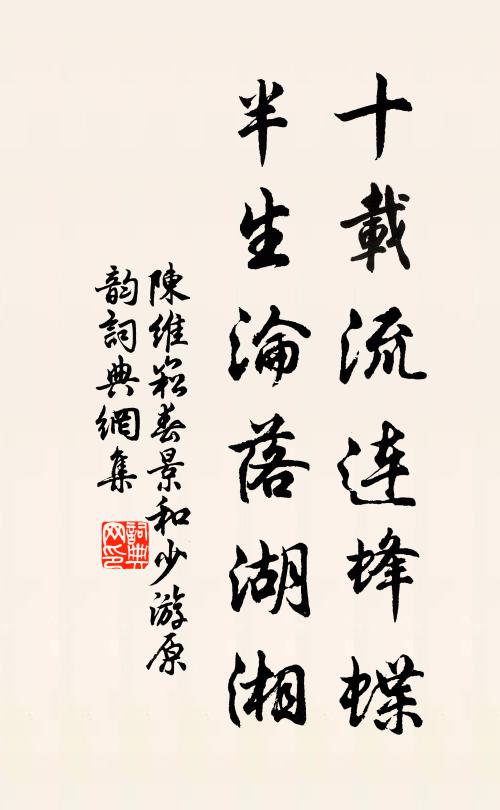 十載流連蜂蝶
半生淪落湖湘
陳維崧春景和少游原
韵詞典網集
詞典網印